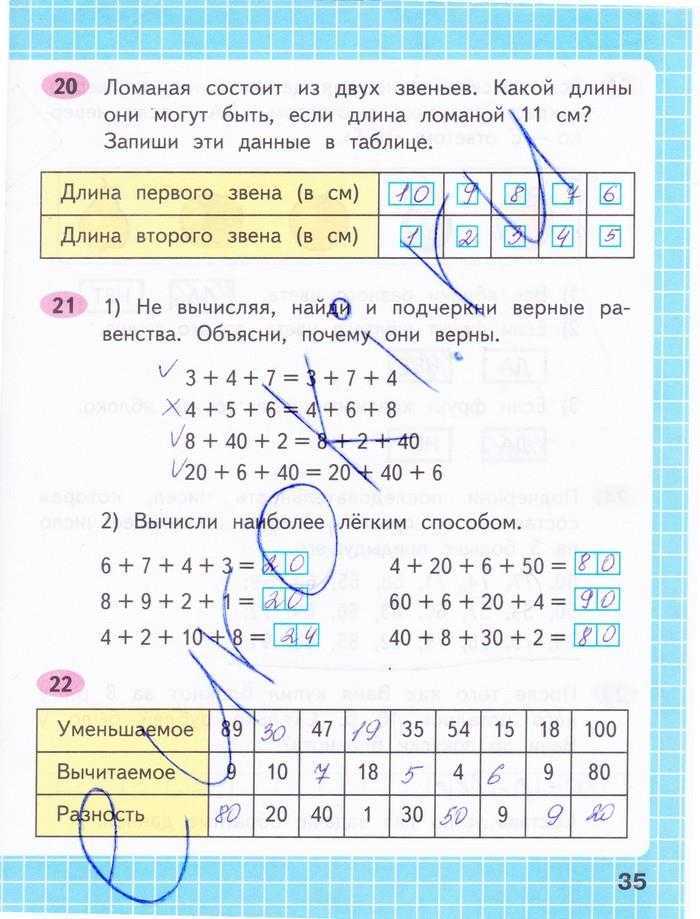 20 Ломаная состоит из двух звеньев. Какой длины
они могут быть, если длина ломаной 11 см?
Запиши эти данные в таблице.
Длина первого звена (в см) 10 9 8 7 6
Длина второго звена (в см) 1 2 3 4 5
21 1) Не вычисляя, найди и подчеркни верные ра-
венства. Объясни, почему они верны.
3 + 4 + 7 = 3 + 7 + 4
4 + 5 + 6 = 4 + 6 + 8
8 + 40 + 2 = 8 + 2 + 40
20 + 6 + 40 = 20 + 40 + 6
2) Вычисли наиболее лёгким способом.
6 + 7 + 4 + 3 = 20 4 + 20 + 6 + 50 = 80
8 + 9 + 2 + 1 = 20 60 + 6 + 20 + 4 = 90
4 + 2 + 10 + 8 = 24 40 + 8 + 30 + 2 = 80
22
Уменьшаемое 89 30 47 19 35 54 15 18 100
Вычитаемое 9 10 7 18 5 4 6 9 80
Разность 80 20 40 1 30 50 9 9 20
35